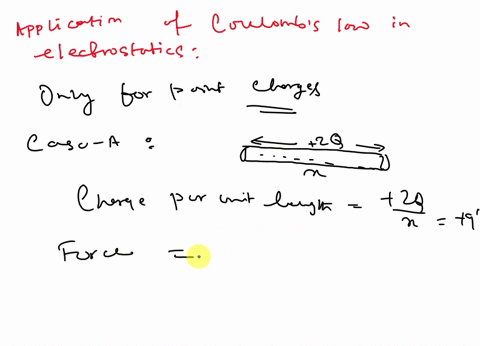 Application of Coulomb's law in
electrostatics:
Only for point charges
Case-A :
+2Q
x
Charge per unit length = +2Q/x = +q'
Force =